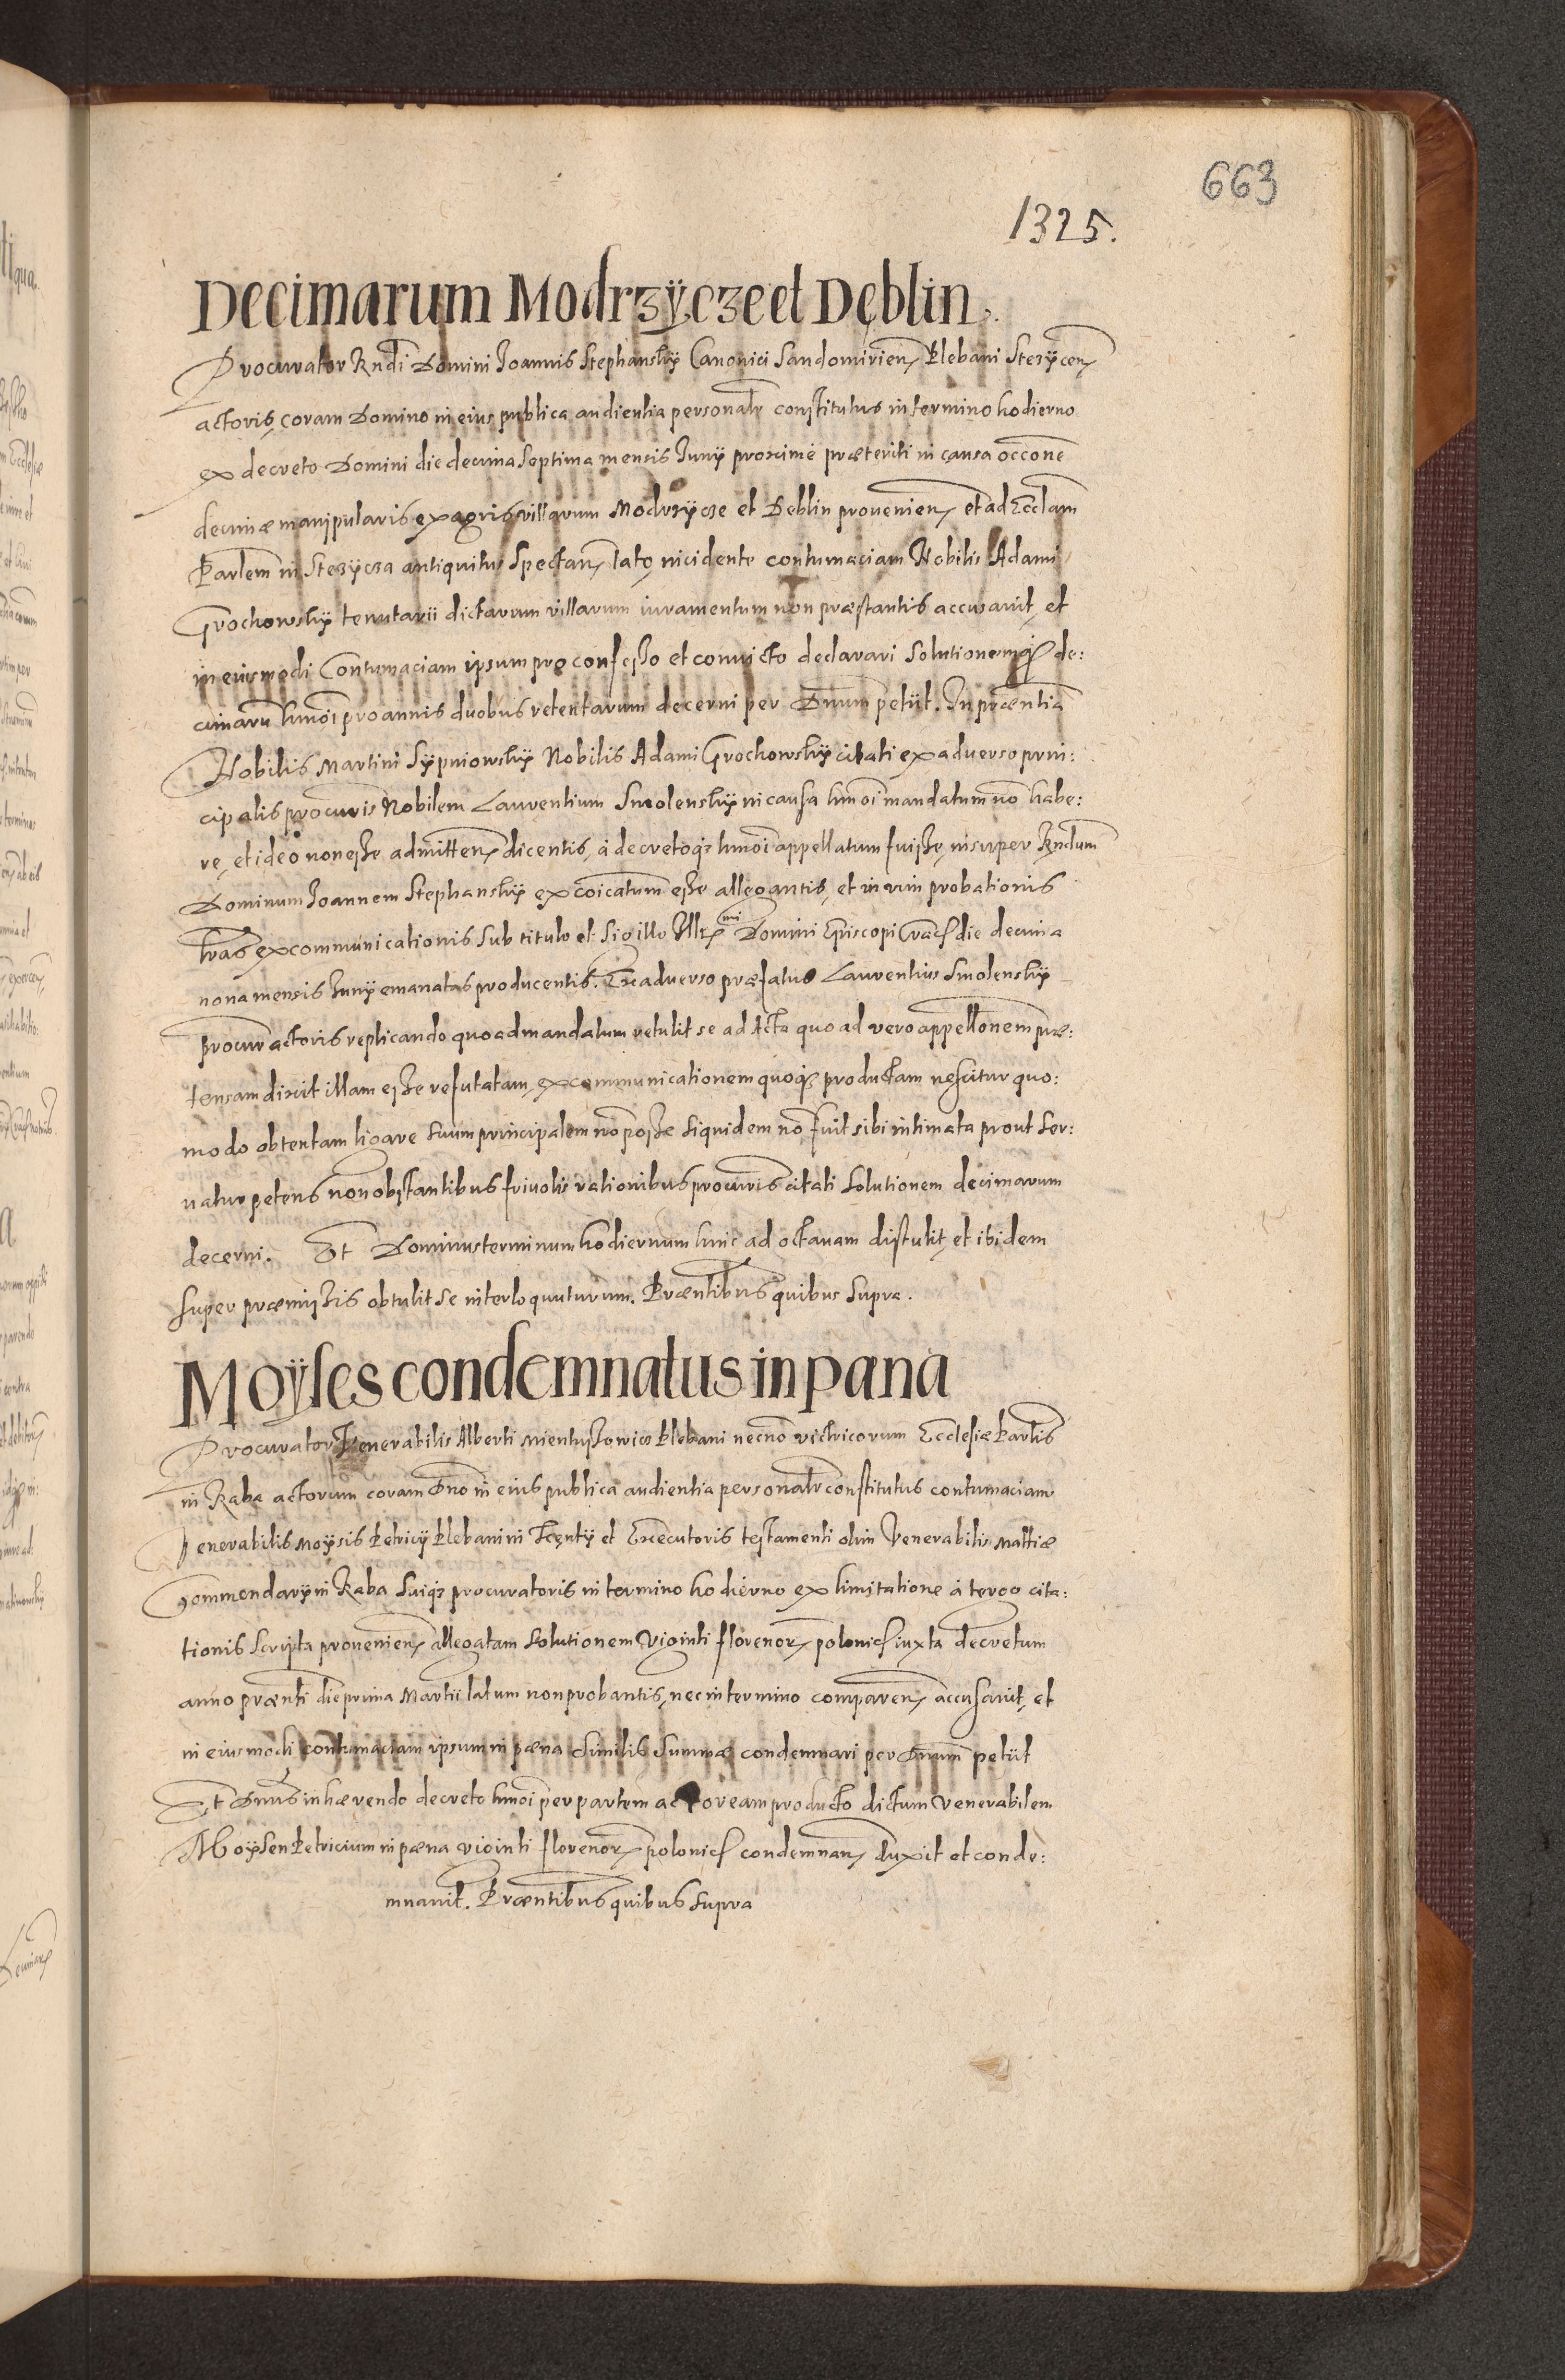 663
1325.
Decimarum Modrzÿcze et Dęblin.
Procurator Rndi Domini Joannis Stephansky Canonici Sandomirien Plebani Stezÿcen
actoris, coram Domino in eius publica audientia personalr constitutus in termino hodierno
ex decreto Domini die decima septima mensis Junÿ proxime præteriti in causa occone
decimæ manipularis ex agris villarum Modrzÿcze et Deblin prouenien et ad Ecclam
Parlem in Stezÿcza antiquitus spectan lato, incidente contumaciam Nobilis Adami
Grochowskÿ tenutarii dictarum villarum iuramentum non præstantis accusauit, et
in eiusmodi Contumaciam ipsum pro confesso et conuicto declarari solutionemq de:
cimaru hmoi pro annis duobus retentarum decerni per Dnum petÿt. In præntia
Nobilis Martini Sÿpniowskÿ Nobilis Adami Grochowskÿ citati ex aduerso prin:
cipalis procuris Nobilem Laurentium Smolenskÿ in causa hmoi mandatum no habe:
re, et ideo non esse admitten dicentis, à decretoq hmoi appellatum fuisse, insuper Rndum
Dominum Joannem Stephanskÿ excoicatum esse allegantis, et in vim probationis
lras excommunicationis sub titulo et sigillo Illr mi Domini Episcopi Crac die decima
nona mensis Junÿ emanatas producentis. Ex aduerso præfatus Laurentius Smolenskÿ
procur actoris replicando quo ad mandatum retulit se ad Acta quo ad vero appellonem præ:
tensam dixit illam esse refutatam, excommunicationem quoq productam nescitur quo:
modo obtentam ligare suum principalem no posse siquidem no fuit sibi intimata prout ser:
uatur petens non obstantibus friuolis rationibus procuris citati solutionem decimarum
decerni. Et Dominus terminum hodiernum hinc ad octauam distulit, et ibidem
super præmissis obtulit se interloquuturum. Præntibus quibus supra.
Moÿses condemnatus in pæna
Procurator Venerabilis Alberti Mientussowicz Plebani necno victricorum Ecclesiæ Parlis
in Raba actorum coram Dno in eius publica audientia personalr constitutus contumaciam
Venerabilis Moÿsis Petricÿ Plebani in Tcentÿ et Executoris testamenti olim Venerabilis Mattiæ
Commendarÿ in Raba suiq procuratoris in termino hodierno ex limitatione à tergo cita:
tionis scripta prouenien allegatam solutionem viginti florenor polonic iuxta decretum
anno prænti die prima Martii latum non probantis, nec in termino comparen accusauit, et
in eiusmodi contumaciam ipsum in pæna similis summæ condemnari per Dnum petÿt
Et Dnus inhærendo decreto hmoi per partem actoream producto dictum Venerabilem
Moÿsen Petricium in pæna viginti florenor polonic condemnan duxit et conde:
mnauit. Præntibus quibus supra